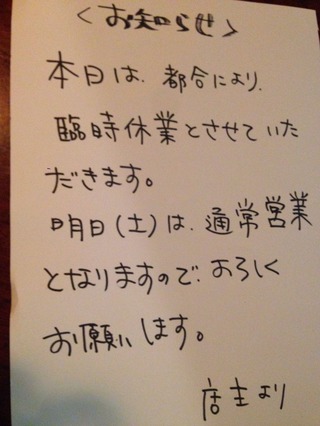 <お知らせ>
本日は、都合により、
臨時休業とさせていた
だきます。
明日(土)は、通常営業
となりますので、よろしく
お願いします。
店主より